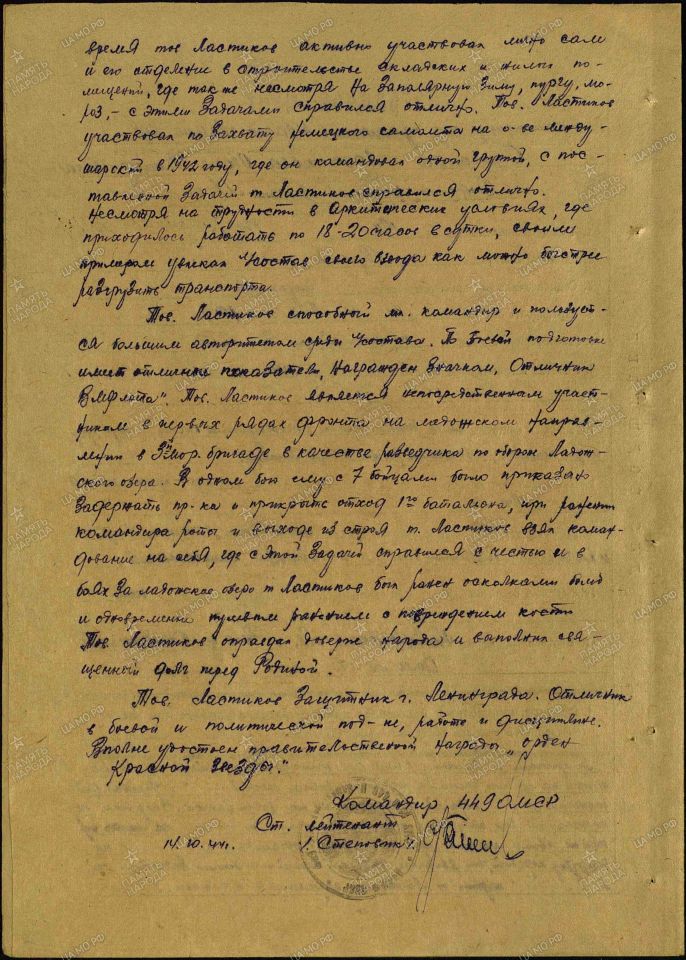 время тов Ластиков активно участвовал лично сам
и его отделение в строительстве складских и жилых по-
мещений, где также несмотря на Заполярную зиму, пургу, мо-
роз, - с этими задачами справился отлично. Тов. Ластиков
участвовал по захвату немецкого самолета на о-ве Между-
шарский в 1942 году, где он командовал одной группой, с пос-
тавленной задачей т. Ластиков справился отлично.
Несмотря на трудности в Арктических условиях, где
приходилось работать по 18-20 часов в сутки, своим
примером увлекал состав своего взвода как можно быстрее
разгрузить транспорта.
Тов. Ластиков способный мл. командир и пользует-
ся большим авторитетом среди состава. По Боевой подготовке
имеет отличные показатели, Награжден значком, Отличник
ВМФлота". Тов. Ластиков является непосредственным участ-
ником в первых рядах фронта на ладожском направ-
лении в 3й мор. бригаде в качестве разведчика по обороне Ладож-
ского озера. В одном бою ему с 7 бойцами было приказано
задержать пр-ка и прикрыть отход 1го батальона, при ранении
командира роты и выходе из строя т. Ластиков взял коман-
дование на себя, где с этой задачей справился с честью и в
боях за ладожское озеро т Ластиков был ранен осколками
и одновременно пулевым ранением с повреждением кости
Тов Ластиков оправдал доверие народа и выполнил свя-
щенный долг перед Родиной.
Тов. Ластиков защитник г. Ленинграда. Отличник
в боевой и политической под-ке, работе и дисциплине.
Вполне удостоен правительственной награды „орден
Красной звезды."
Командир 449 ОМСР
Ст. лейтенант
14.10.44г. /. Степовик /.
ПАМЯТЬ НАРОДА
ЦАМО.РФ